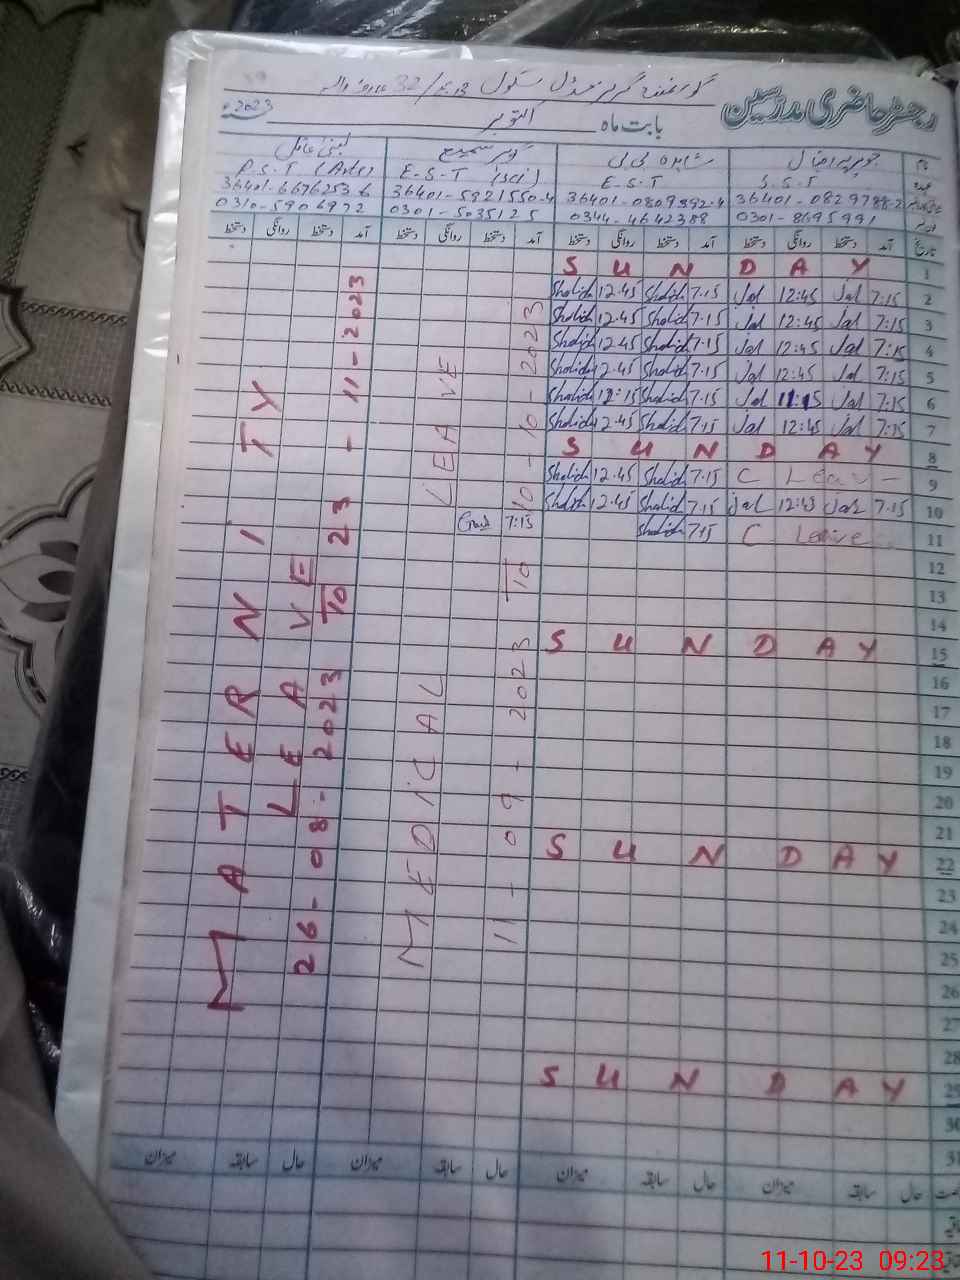 رجسٹر حاضری مدرسین
گورنمنٹ گرلز مڈل سکول 32
بابت ماہ اکتوبر 2023ء
شاہدہ بی بی
S.S.T
E-S-T
E-S-T (Sci)
P.S.T (Arts)
36401-0829788-2
36401-0809892-4
36401-5921550-4
36401-6676253-6
0301-8695991
0344-4642388
0301-5035125
0310-5906972
تاریخ آمد دستخط روانگی دستخط آمد دستخط روانگی دستخط آمد دستخط روانگی دستخط آمد دستخط روانگی دستخط
1 SUNDAY
2 7:15 Jal 12:45 Jal 7:15 Shahida 12:45 Shahida
3 7:15 Jal 12:45 Jal 7:15 Shahida 12:45 Shahida
4 7:15 Jal 12:45 Jal 7:15 Shahida 12:45 Shahida
5 7:15 Jal 12:45 Jal 7:15 Shahida 12:45 Shahida
6 7:15 Jal 11:15 Jal 7:15 Shahida 12:15 Shahida
7 7:15 Jal 12:45 Jal 7:15 Shahida 12:45 Shahida
8 SUNDAY
9 C Leave 7:15 Shahida 12:45 Shahida
10 7:15 Jal 12:45 Jal 7:15 Shahida 12:45 Shahida
11 C Leave 7:15 Shahida 7:15
12
13
14
15 SUNDAY
16
17
18
19
20
21
22 SUNDAY
23
24
25
26
27
28
29 SUNDAY
30
31
MEDICAL LEAVE
11-09-2023 10 10-10-2023
MATERNITY
LEAVE
26-08-2023 10 23 - 11-2023
حال سابقہ میزان حال سابقہ میزان حال سابقہ میزان حال سابقہ میزان
11-10-23 09:23